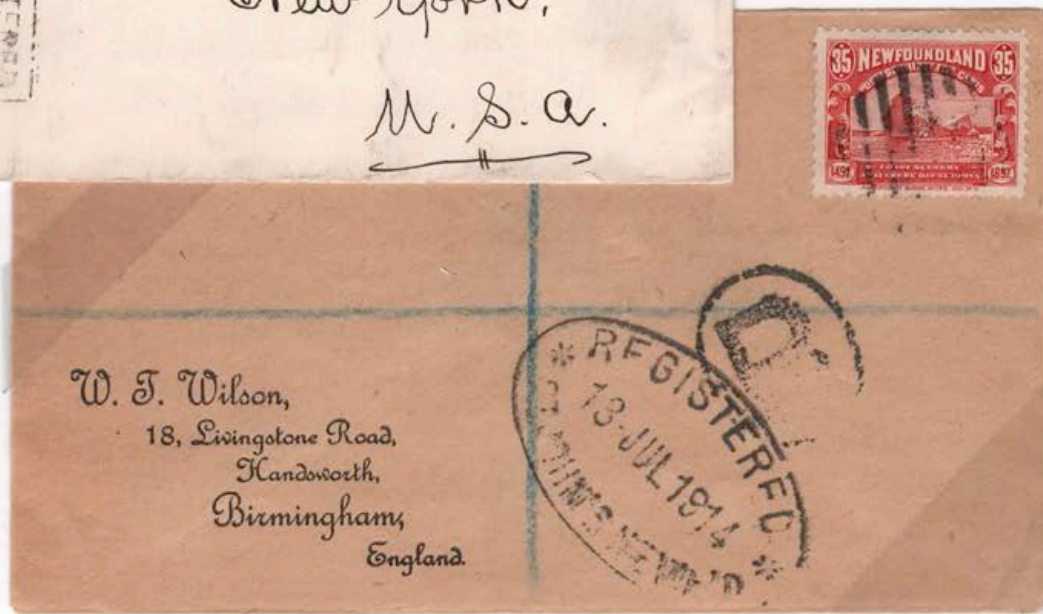 New York,
U. S. A.
35 NEWFOUNDLAND 35
1497 1897
W. T. Wilson,
18, Livingstone Road,
Handsworth,
Birmingham,
England.
* REGISTERED *
13-JUL 1914
R